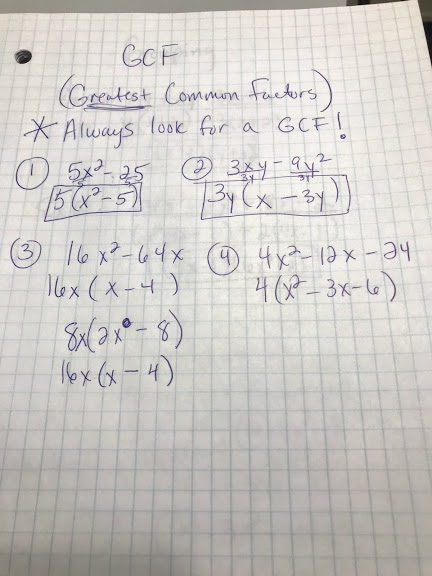 GCF
(Greatest Common Factors)
* Always look for a GCF!
① 5x² - 25
5 5
5(x² - 5)
② 3xy - 9y²
3y 3y
3y(x - 3y)
③ 16x² - 64x
16x(x - 4)
8x(2x - 8)
16x(x - 4)
④ 4x² - 12x - 24
4(x² - 3x - 6)